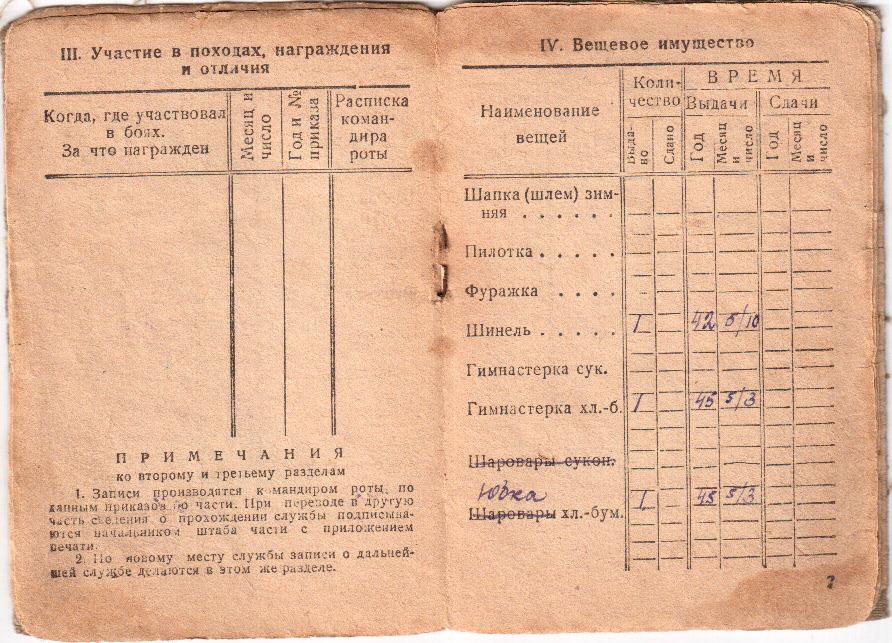 III. Участие в походах, награждения
и отличия
Когда, где участвовал
в боях.
За что награжден
Месяц и
число
Год и №
приказа
Расписка
коман-
дира
роты
ПРИМЕЧАНИЯ
ко второму и третьему разделам
1. Записи производятся командиром роты, по
данным приказов по части. При переводе в другую
часть сведения о прохождении службы подписыва-
ются начальником штаба части с приложением
печати.
2. По новому месту службы записи о дальней-
шей службе делаются в этом же разделе.
IV. Вещевое имущество
Наименование
вещей
Коли-
чество
ВРЕМЯ
Выдачи
Сдачи
Выда-
но
Сдано
Год
Месяц
и
число
Год
Месяц
и
число
Шапка (шлем) зим-
няя . . . . . .
Пилотка . . . . .
Фуражка . . . .
Шинель . . . . . 1 42 5/10
Гимнастерка сук.
Гимнастерка хл.-б. 1 45 5/3
Шаровары сукон.
Юбка 1 45 5/3
Шаровары хл.-бум.
7